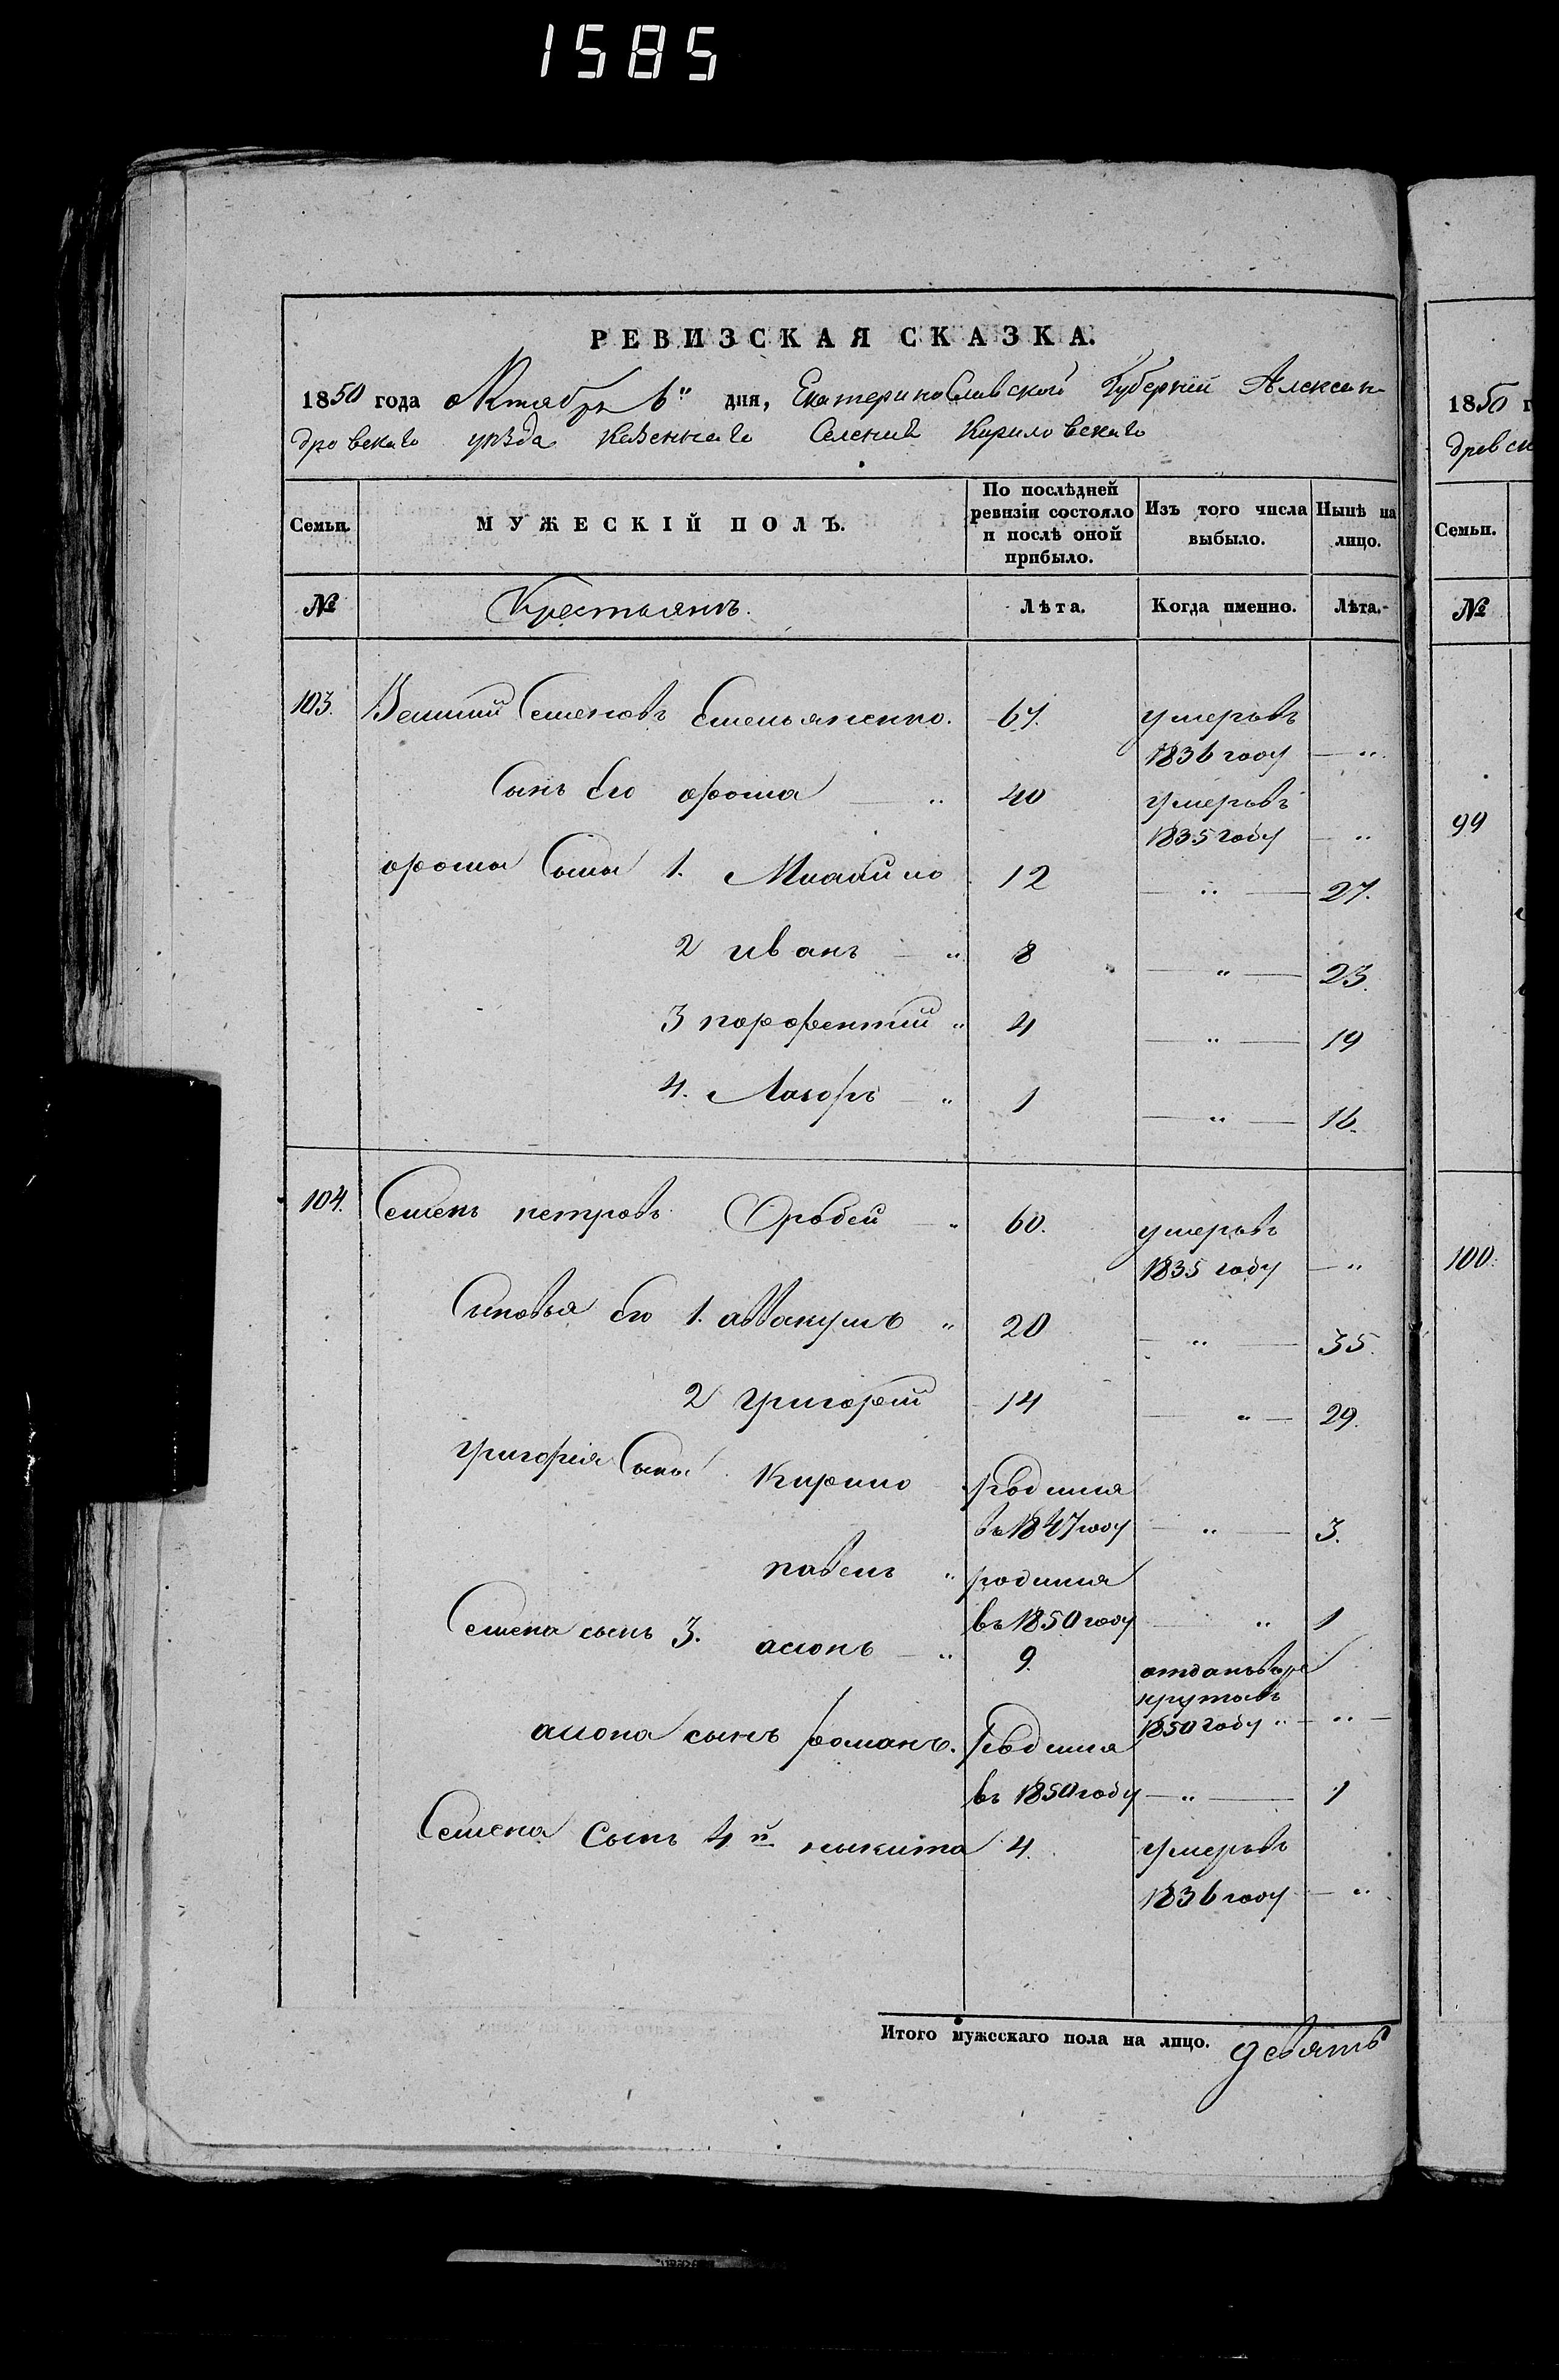 1585
РЕВИЗСКАЯ СКАЗКА.
1850 года октября 6" дня, Екатеринославской Губерніи Алексан
дровскаго уѣзда казеннаго Селенія Кириловскаго
Семьи. МУЖЕСКІЙ ПОЛЪ. По послѣдней ревизіи состояло и послѣ оной прибыло. Изъ того числа выбыло. Нынѣ на лицо.
№ Крестьянъ. Лѣта. Когда именно. Лѣта.
103. Семеновъ Емельяненко. 67. умеръ въ
1836 году — "
Сынъ его ѳома — " 40 умеръ въ
1835 году — "
ѳомы Сыны 1. Михайло 12 — " — 27.
2 иванъ — " 8 — " — 23.
3 порфентий " 4 — " — 19
4. Лазорь — " 1 — " — 16.
104. Семенъ петровъ — " 60. умеръ въ
1835 году — "
Синовья его 1. аввакумъ " 20 — " — 35.
2 григорий 14 — " — 29.
григорія Сыны Кирило родился
въ 1847 году — " — 3.
павелъ " родился
въ 1850 году — " 1
Семена сынъ 3. — " 9. отданъ въ ре
крути въ
1850 году " — " —
сынъ романъ. родился
въ 1850 году — " — 1
Семена Сынъ 4й никита 4. умеръ въ
1836 году — "
Итого мужескаго пола на лицо. девять
1850 г
Семьи.
№
99
100.